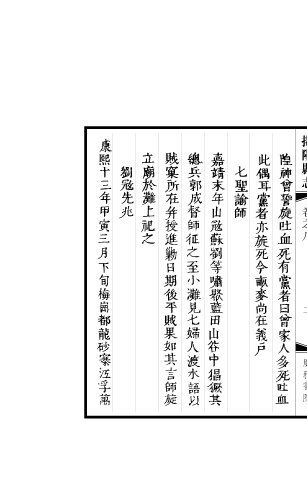 隍神曾誓旋吐血死有黨者曰曾家人多死吐血
此偶耳黨者亦旋死今畝麥尚在義戶
七聖諭師
嘉靖末年山寇蘇劉等嘯聚藍田山谷中猖獗其
總兵郭成督師征之至小灘見七婦人渡水語以
賊窠所在并授進勦日期後平賊果如其言師旋
立廟於灘上祀之
劉寇先兆
康熙十三年甲寅三月下旬梅岡都龍砂寨江浮萬